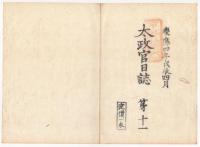 慶應四年戊辰四月
太政官日誌
第十一